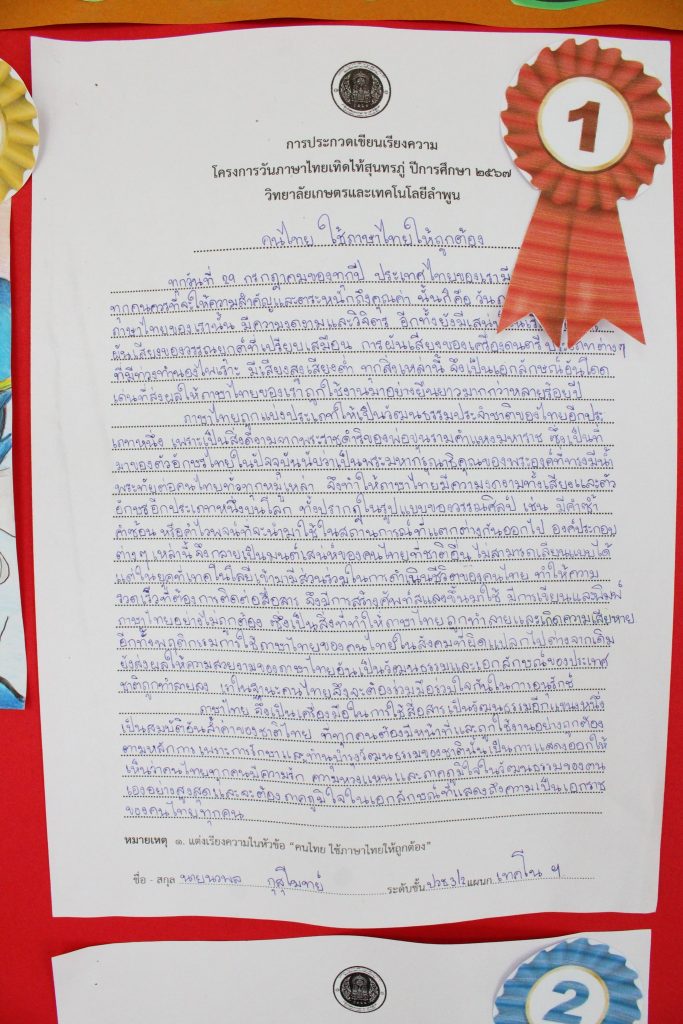 1
การประกวดเขียนเรียงความ
โครงการวันภาษาไทยเทิดไท้สุนทรภู่ ปีการศึกษา ๒๕๖๗
วิทยาลัยเกษตรและเทคโนโลยีลำพูน
คนไทย ใช้ภาษาไทยให้ถูกต้อง
ทุกวันที่ ๒๙ กรกฎาคมของทุกปี ประเทศไทยของเรามี
ทุกคนควรที่จะให้ความสำคัญและตระหนักถึงคุณค่า นั้นก็คือ วัน
ภาษาไทยของเรานั้น มีความงดงามและวิจิตร อีกทั้งยังมีเสน่ห์
ผันเสียงของวรรณยุกต์ที่เปรียบเสมือน การผันเสียงของเครื่องดนตรี ประเภทต่างๆ
ที่มีท่วงทำนองไพเราะ มีเสียงสูงเสียงต่ำ ทุกสิ่งเหล่านี้ จึงเป็นเอกลักษณ์อันโดด
เด่นที่ส่งผลให้ภาษาไทยของเราถูกใช้งานมาอย่างยืนยาวมากกว่าหลายร้อยปี
ภาษาไทยถูกแบ่งประเภทให้เป็นวัฒนธรรมประจำชาติของไทยอีกประ
เภทหนึ่ง เพราะเป็นสิ่งดีงามจากพระราชดำริของพ่อขุนรามคำแหงมหาราช ซึ่งเป็นที่
มาของตัวอักษรไทยในปัจจุบันนับว่าเป็นพระมหากรุณาธิคุณของพระองค์ที่ทรงมีน้ำ
พระทัยต่อคนไทยทั่วทุกหมู่เหล่า จึงทำให้ภาษาไทยมีความงดงามทั้งเสียงและตัว
อักษรอีกประเภทหนึ่งบนโลก ทั้งปรากฏในรูปแบบของวรรณศิลป์ เช่น มีคำซ้ำ
คำซ้อน หรือคำไวพจน์ที่จะนำมาใช้ในสถานการณ์ที่แตกต่างกันออกไป องค์ประกอบ
ต่างๆ เหล่านี้ จึงกลายเป็นมนต์เสน่ห์ของคนไทยที่ชาติอื่น ไม่สามารถเลียนแบบได้
แต่ในยุคที่เทคโนโลยีเข้ามามีส่วนร่วมในการดำเนินชีวิตของคนไทย ทำให้ความ
รวดเร็วที่ต้องการติดต่อสื่อสาร จึงมีการสร้างศัพท์สแลงขึ้นมาใช้ มีการเขียนและพิมพ์
ภาษาไทยอย่างไม่ถูกต้อง ซึ่งเป็นสิ่งที่ทำให้ภาษาไทยถูกทำลายและเกิดความเสียหาย
อีกทั้งพฤติกรรมการใช้ภาษาไทยของคนไทยในสังคมที่ผิดแปลกไปต่างจากเดิม
ยังส่งผลให้ความสวยงามของภาษาไทยอันเป็นวัฒนธรรมและเอกลักษณ์ของประเทศ
ชาติถูกทำลายลง เราในฐานะคนไทยจึงจะต้องร่วมมือร่วมใจกันในการอนุรักษ์
ภาษาไทย จึงเป็นเครื่องมือในการใช้สื่อสารเป็นวัฒนธรรมอีกแขนงหนึ่ง
เป็นสมบัติอันล้ำค่าของชาติไทย ที่ทุกคนต้องมีหน้าที่และถูกใช้งานอย่างถูกต้อง
ตามหลักการ เพราะการรักษาและทำนุบำรุงวัฒนธรรมของชาตินั้นเป็นการแสดงออกให้
เห็นว่าคนไทยทุกคนมีความรัก ความหวงแหน และภาคภูมิใจในวัฒนธรรมของตน
เองอย่างสูงสุดและจะต้องภาคภูมิใจในเอกลักษณ์ที่แสดงถึงความเป็นเอกราช
ของคนไทยทุกคน
หมายเหตุ ๑. แต่งเรียงความในหัวข้อ "คนไทย ใช้ภาษาไทยให้ถูกต้อง"
ชื่อ - สกุล นายนวพล ระดับชั้น ปวช.3/2 แผนก เทคโน ฯ
2